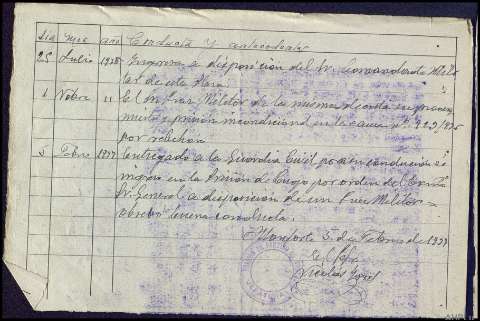 dia mes año Conducta y antecedentes
25 Julio 1938 Ingresa a disposición del Sr. Comandante Mili-
tar de esta Plaza
1 Novbre 11 El Sr. Juez Militar de la misma decreta su procesa-
miento y prisión incondicional en la causa nº
por rebelion
5 Febro 1939 Entregado a la Guardia Civil para su conducción e
ingreso en la Prisión de Lugo por orden del
Sr. General a disposición de un Juez Militar
observó buena conducta.
Monforte 5 de Febrero de 1939
El Jefe
Nicolás